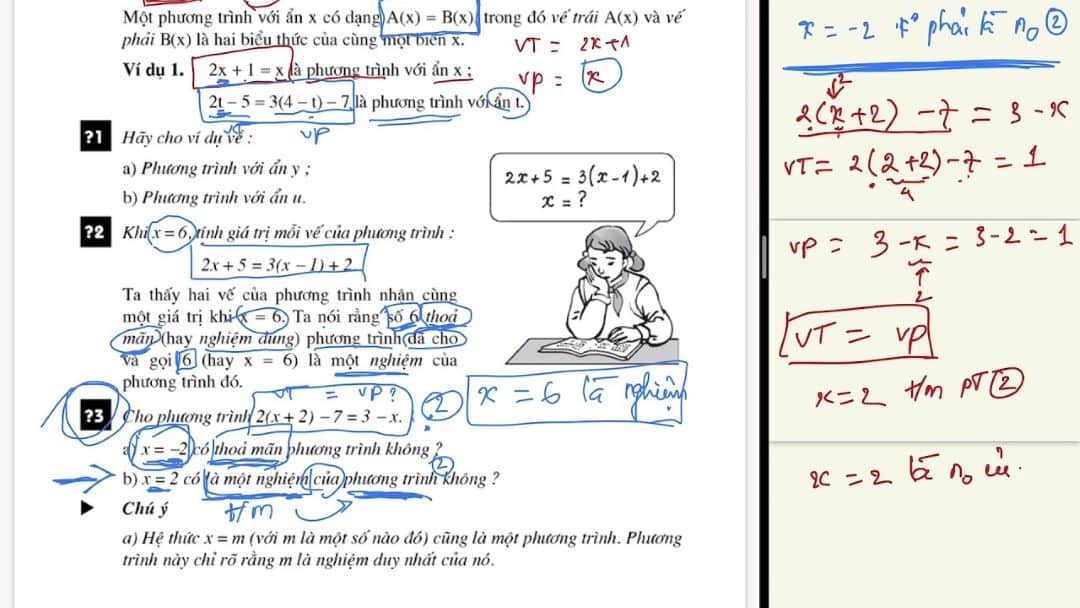 Một phương trình với ẩn x có dạng A(x) = B(x), trong đó vế trái A(x) và vế
phải B(x) là hai biểu thức của cùng một biến x.
VT = 2x+1
Ví dụ 1. 2x + 1 = x là phương trình với ẩn x ;
VP = x
2t − 5 = 3(4 − t) − 7 là phương trình với ẩn t.
VP
?1 Hãy cho ví dụ về :
a) Phương trình với ẩn y ;
b) Phương trình với ẩn u.
2x+5 = 3(x−1)+2
x = ?
?2 Khi x = 6, tính giá trị mỗi vế của phương trình :
2x + 5 = 3(x − 1) + 2
Ta thấy hai vế của phương trình nhận cùng
một giá trị khi x = 6. Ta nói rằng số 6 thoả
mãn (hay nghiệm đúng) phương trình đã cho
và gọi 6 (hay x = 6) là một nghiệm của
phương trình đó.
x = 6 là nghiệm
VT = VP ?
?3 Cho phương trình 2(x + 2) − 7 = 3 − x. 2
a) x = −2 có thoả mãn phương trình không ?
2
b) x = 2 có là một nghiệm của phương trình không ?
t/m
Chú ý
a) Hệ thức x = m (với m là một số nào đó) cũng là một phương trình. Phương
trình này chỉ rõ rằng m là nghiệm duy nhất của nó.
x = −2 phải là no 2
2
2(x+2) −7 = 3 −x
VT = 2(2+2)−7 = 1
4
VP = 3 −x = 3−2 = 1
2
VT = VP
x = 2 t/m PT 2
x = 2 là no